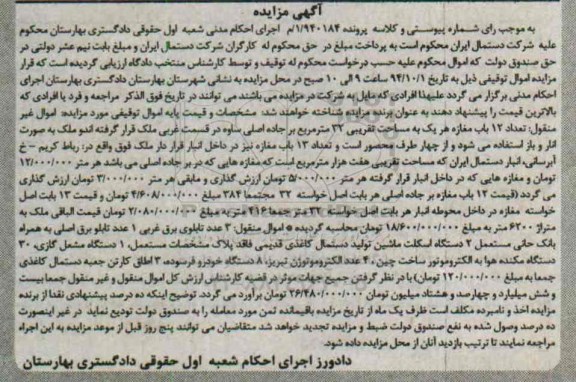 آگهی مزایده
به موجب رای شماره پیوستی و کلاسه پرونده ۱/۹۴۰۱۸۴/م اجرای احکام مدنی شعبه اول حقوقی دادگستری بهارستان محکوم
علیه شرکت دستمال ایران محکوم است به پرداخت مبلغ در حق محکوم له کارگران شرکت دستمال ایران و مبلغ بابت نیم عشر دولتی در
حق صندوق دولت که اموال محکوم علیه حسب درخواست محکوم له توقیف و توسط کارشناس منتخب دادگاه ارزیابی گردیده است که قرار
مزایده اموال توقیفی ذیل به تاریخ ۹۴/۱۰/۱ ساعت ۹ الی ۱۰ صبح در محل مزایده به نشانی شهرستان بهارستان دادگستری بهارستان اجرای
احکام مدنی برگزار می گردد علیهذا افرادی که مایل به شرکت در مزایده می باشند می توانند در تاریخ فوق الذکر مراجعه و فرد یا افرادی که
بالاترین قیمت را پیشنهاد دهند به عنوان برنده مزایده شناخته خواهند شد: مشخصات و قیمت پایه اموال توقیفی مورد مزایده: اموال غیر
منقول: تعداد ۱۲ باب مغازه هر یک به مساحت تقریبی ۳۲ مترمربع بر جاده اصلی ساوه در قسمت غربی ملک قرار گرفته اندو ملک به صورت
انار و باز استفاده می شود و از چهار طرف محصور است و تعداد ۱۳ باب مغازه نیز در داخل انبار قرار دار ملک فوق واقع در: رباط کریم - خ
آبرسانی، انبار دستمال ایران که مساحت تقریبی هفت هزار مترمربع است که مغازه هایی که در بر جاده اصلی می باشد هر متر ۱۲/۰۰۰/۰۰۰
تومان و مغازه هایی که در داخل انبار قرار گرفته هر متر ۵/۰۰۰/۰۰۰ تومان ارزش گذاری و مابقی هر متر ۳/۰۰۰/۰۰۰ تومان ارزش گذاری
می گردد (قیمت ۱۲ باب مغازه بر جاده اصلی هر بابت اصل خواسته ۳۲ مجتمعا ۳۸۴ مبلغ ۴/۶۰۸/۰۰۰/۰۰۰ تومان و قیمت ۱۳ بابت اصل
خواسته مغازه در داخل محوطه انبار هر بابت اصل خواسته ۳۲ متر جمعا ۴۱۶ متر به مبلغ ۲/۰۸۰/۰۰۰/۰۰۰ تومان قیمت الباقی ملک به
متراژ ۶۲۰۰ متر به مبلغ ۱۸/۶۰۰/۰۰۰/۰۰۰ تومان محاسبه گردیده * اموال منقول: ۳ عدد تابلوی برق غربی ۱ عدد تابلو برق اصلی به همراه
بانک خانی مستعمل ۲ دستگاه اسکلت ماشین تولید دستمال کاغذی قدیمی فاقد پلاک مشخصات مستعمل، ۱ دستگاه مشعل گازی، ۳۰
دستگاه مکنده هوا به الکتروموتور ساخت چین، ۴۰ عدد الکتروموتوژن تبریز، ۸ دستگاه خودرو فرسوده، ۳ اطاق کارتن جعبه دستمال کاغذی
جمعا به مبلغ ۱۲۰/۰۰۰/۰۰۰ تومان) با در نظر گرفتن جمیع جهات موثر در قضیه کارشناس ارزش کل اموال منقول و غیر منقول جمعا بیست
و شش میلیارد و چهارصد و هشتاد میلیون تومان ۲۶/۴۸۰/۰۰۰/۰۰۰ تومان برآورد می گردد. توضیح اینکه ده درصد پیشنهادی نقدا از برنده
مزایده اخذ و نامبرده مکلف است ظرف یک ماه از تاریخ مزایده باقیمانده ثمن مورد معامله را به صندوق دولت تودیع نماید در غیر اینصورت
ده درصد وصول شده به نفع صندوق دولت ضبط و مزایده تجدید خواهد شد متقاضیان می توانند پنج روز قبل از موعد مزایده به این اجراء
مراجعه نمایند تا ترتیب بازدید آنان از محل مزایده داده شود.
دادورز اجرای احکام شعبه اول حقوقی دادگستری بهارستان